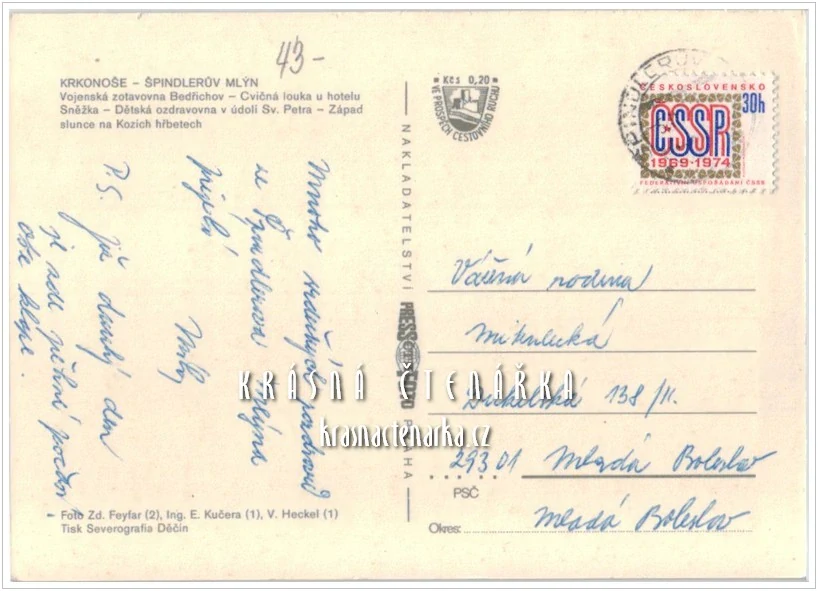 43-
KRKONOŠE – ŠPINDLERŮV MLÝN
Vojenská zotavovna Bedřichov – Cvičná louka u hotelu
Sněžka – Dětská ozdravovna v údolí Sv. Petra – Západ
slunce na Kozích hřbetech
Kčs 0,20
VE PROSPĚCH CESTOVNÍHO RUCHU
ČESKOSLOVENSKO
30h
ČSSR
1969-1974
FEDERATIVNÍ USPOŘÁDÁNÍ ČSSR
Mnoho srdečných pozdravů
ze Špindlerova Mlýna
P.S. Již druhý den
je zde pěkné počasí
NAKLADATELSTVÍ PRESSFOTO PRAHA
Vážená rodina
Mikulecká
138/II.
293 01 Mladá Boleslav
PSČ
Okres: Mladá Boleslav
KRÁSNÁ ČTENÁŘKA
krasnactenarka.cz
Foto Zd. Feyfar (2), Ing. E. Kučera (1), V. Heckel (1)
Tisk Severografia Děčín